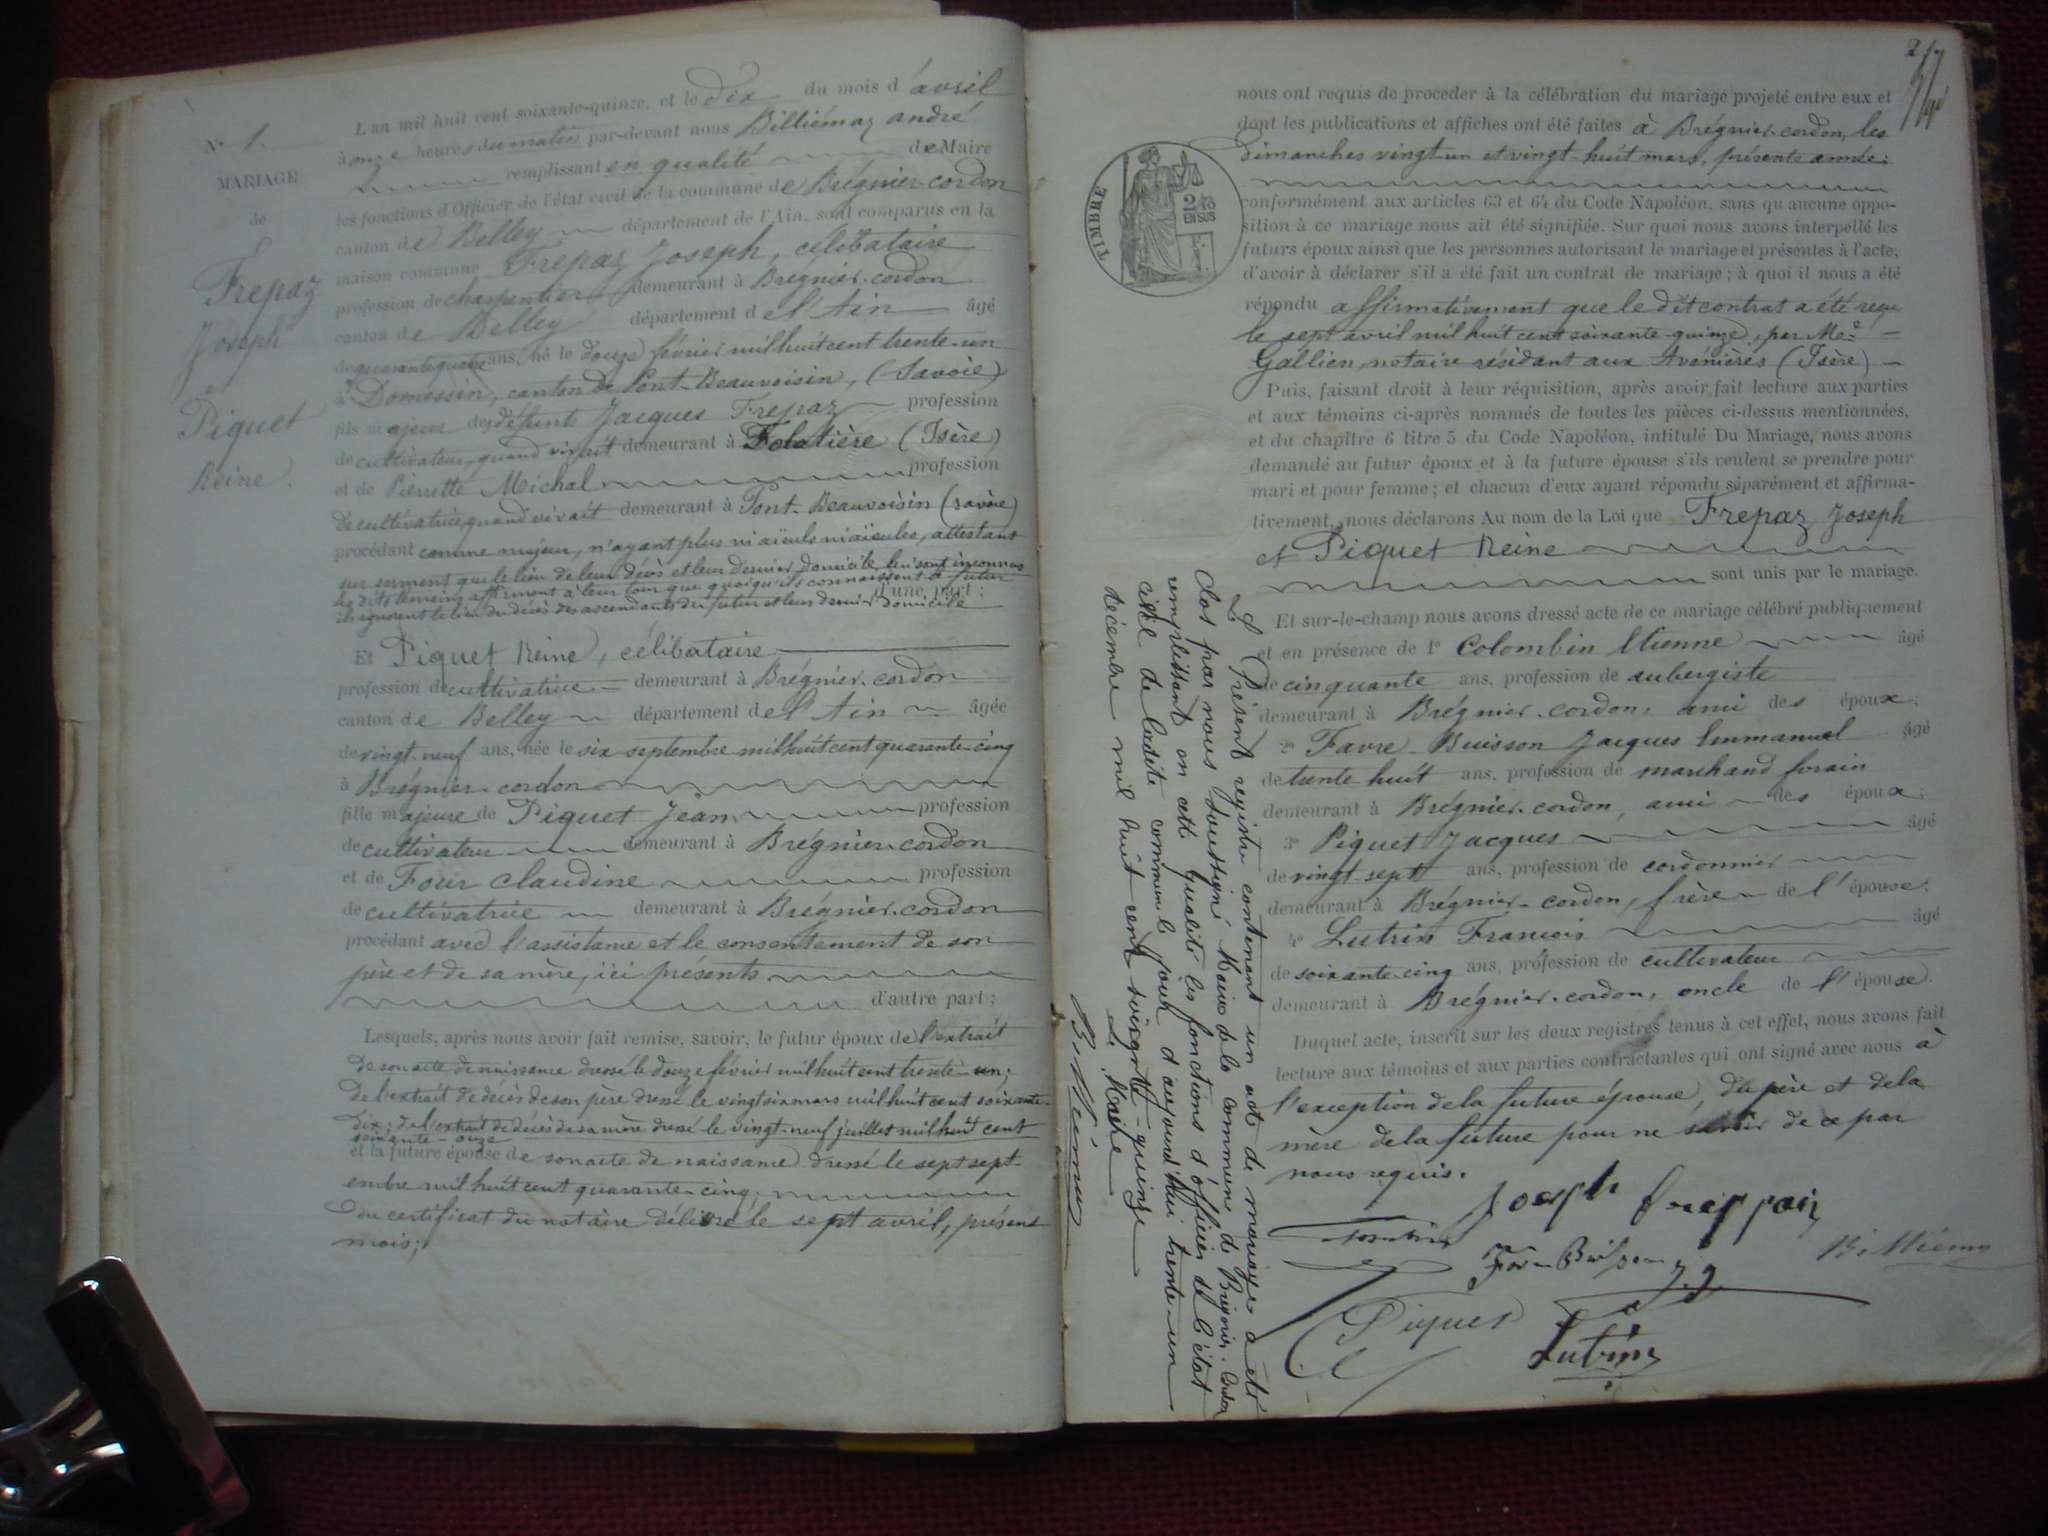 N° 1.
MARIAGE
de
Frepaz
Joseph
et
Piquet
Reine.
L'an mil huit cent soixante-quinze, et le dix du mois d'avril
à onze heures du matin par-devant nous Billiémaz andré
remplissant en qualité de Maire
les fonctions d'Officier de l'état civil de la commune de Brégnier-cordon
canton de Belley département de l'Ain, sont comparus en la
maison commune Frepaz Joseph, célibataire
profession de charpentier demeurant à Brégnier-cordon
canton de Belley département de l'Ain âgé
de quarante quatre ans, né le douze février mil huit cent trente-un
à Domessin, canton de Pont-Beauvoisin, (Savoie)
fils majeur des défunts Jacques Frepaz profession
de cultivateur, quand vivait demeurant à Folatière (Isère)
et de Pierrette Michal profession
de cultivatrice, quand vivait demeurant à Pont-Beauvoisin (savoie)
procédant comme majeur, n'ayant plus ni aïeuls ni aïeules, attestant
sur serment que le lieu de leur décès et leur dernier domicile lui sont inconnus
les dits témoins affirment à leur tour que quoiqu'ils connaissent le futur
d'une part;
ils ignorent le lieu du décès des ascendants du futur et leur dernier domicile
Et Piquet Reine, célibataire
profession de cultivatrice demeurant à Brégnier-cordon
canton de Belley département de l'Ain âgée
de vingt-neuf ans, née le six septembre mil huit cent quarante-cinq
à Brégnier-cordon
fille majeure de Piquet Jean profession
de cultivateur demeurant à Brégnier-cordon
et de Four claudine profession
de cultivatrice demeurant à Brégnier-cordon
procédant avec l'assistance et le consentement de son
père et de sa mère, ici présents
d'autre part;
Lesquels, après nous avoir fait remise, savoir, le futur époux de l'extrait
de son acte de naissance dressé le douze février mil huit cent trente-un;
de l'extrait de décès de son père dressé le vingt six mars mil huit cent soixante
dix; de l'extrait de décès de sa mère dressé le vingt-neuf juillet mil huit cent
soixante-onze
et la future épouse de son acte de naissance dressé le sept sept-
embre mil huit cent quarante-cinq;
du certificat du notaire délivré le sept avril, présent
mois;
nous ont requis de proceder à la célébration du mariage projeté entre eux et
dont les publications et affiches ont été faites à Brégnier-cordon, les
dimanches vingt-un et vingt-huit mars, présente année;
TIMBRE
2/10
EN SUS
conformément aux articles 63 et 64 du Code Napoléon, sans qu'aucune oppo-
sition à ce mariage nous ait été signifiée. Sur quoi nous avons interpellé les
futurs époux ainsi que les personnes autorisant le mariage et présentes à l'acte,
d'avoir à déclarer s'il a été fait un contrat de mariage; à quoi il nous a été
répondu affirmativement que le dit contrat a été reçu
le sept avril mil huit cent soixante-quinze, par Me
Gallien, notaire résidant aux Avenières (Isère)
Puis, faisant droit à leur réquisition, après avoir fait lecture aux parties
et aux témoins ci-après nommés de toutes les pièces ci-dessus mentionnées,
et du chapitre 6 titre 5 du Code Napoléon, intitulé Du Mariage, nous avons
demandé au futur époux et à la future épouse s'ils veulent se prendre pour
mari et pour femme; et chacun d'eux ayant répondu séparément et affirma-
tivement, nous déclarons Au nom de la Loi que Frepaz Joseph
et Piquet Reine
sont unis par le mariage.
Et sur-le-champ nous avons dressé acte de ce mariage célébré publiquement
et en présence de 1° Colombin Etienne âgé
de cinquante ans, profession de aubergiste
demeurant à Brégnier-cordon, ami des époux;
2° Favre-Buisson Jacques Emmanuel âgé
de trente-huit ans, profession de marchand forain
demeurant à Brégnier-cordon, ami des époux;
3° Piquet Jacques âgé
de vingt-sept ans, profession de cordonnier
demeurant à Brégnier-cordon, frère de l'épouse;
4° Lutrin Francois âgé
de soixante-cinq ans, profession de cultivateur
demeurant à Brégnier-cordon, oncle de l'épouse.
Duquel acte, inscrit sur les deux registres tenus à cet effet, nous avons fait
lecture aux témoins et aux parties contractantes qui ont signé avec nous à
l'exception de la future épouse, du père et de la
mère de la future pour ne savoir de ce par
nous requis.
Joseph freppaz
Billiémaz
Piquet
Lutrin
Le Présent registre contenant un acte de mariage a été
clos par nous soussigné Maire de la commune de Brégnier-Cordon
remplissant en cette qualité les fonctions d'officier de l'état
civil de ladite commune le jour d'aujourd'hui trente-un
décembre mil huit cent soixante-quinze
Le Maire
Billiémaz